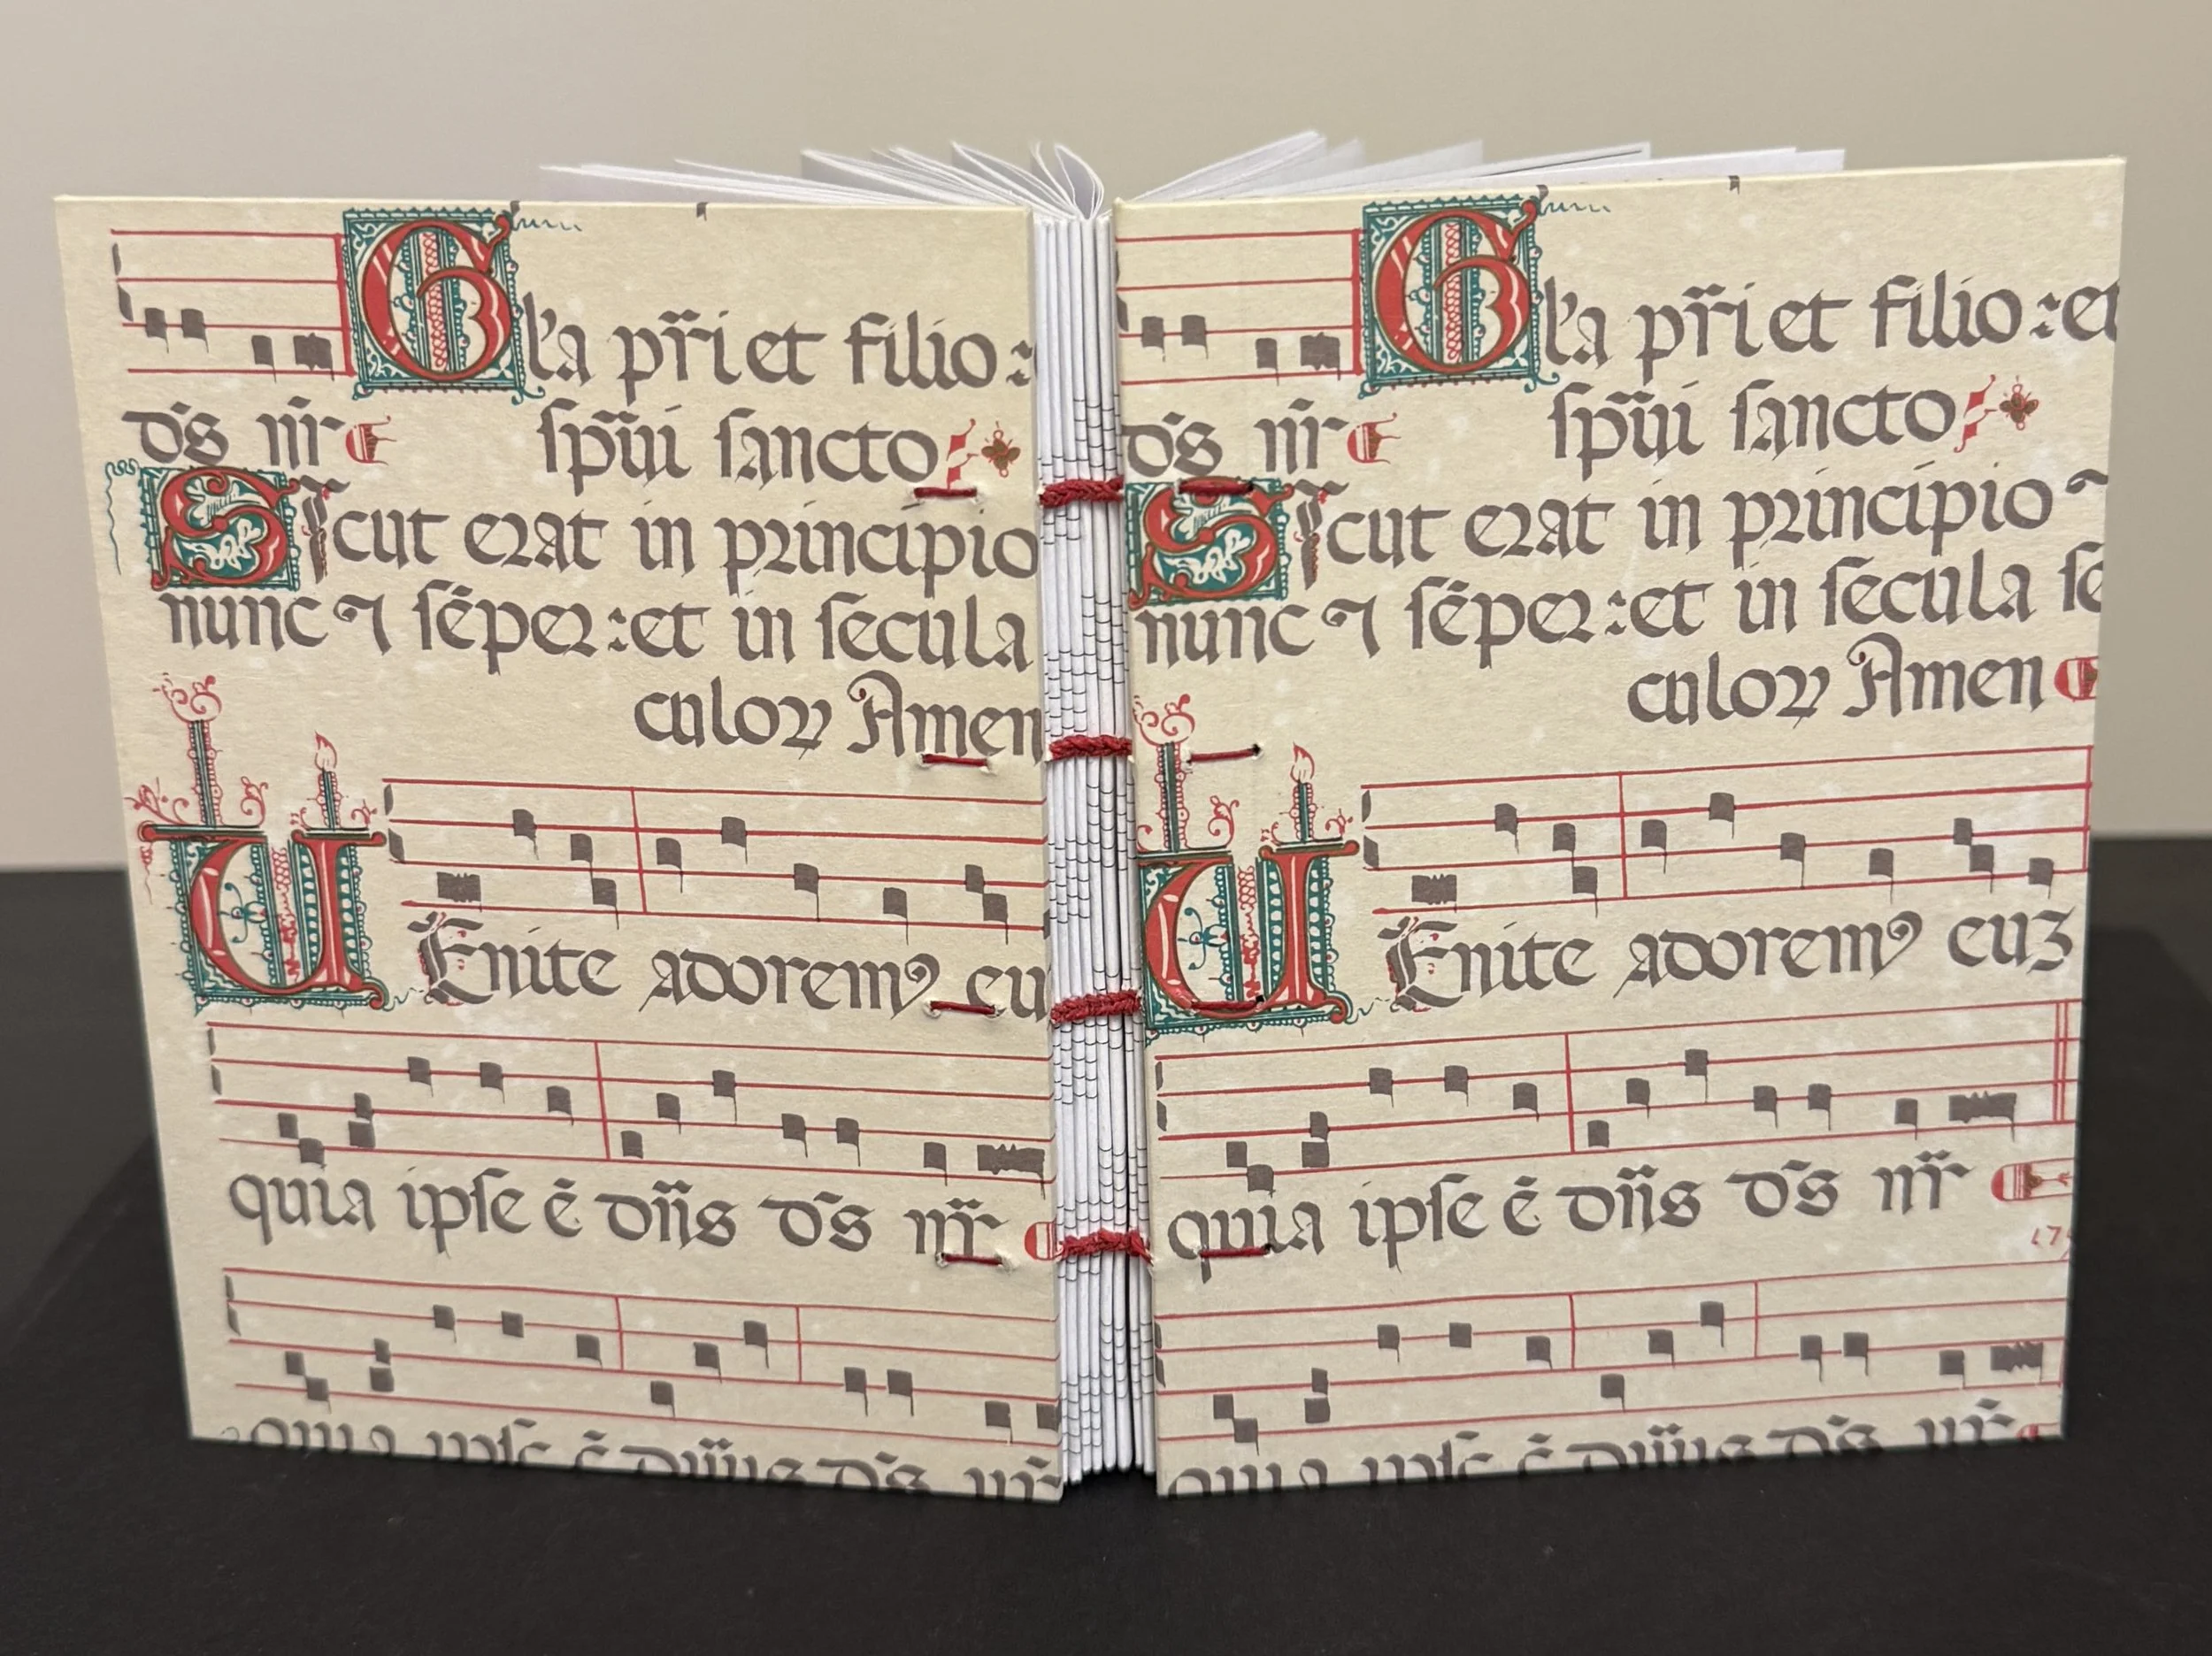 Gl'a pr̃i et filio :
dS nr̃
sp̃ui sancto
Sicut erat in principio
nunc ⁊ sēper : et in secula
culoꝝ Amen
UEnite adoremꝰ eu
quia ipse ē dñs dS nr̃
quia ipse ē dñs dS nr̃
Gl'a pr̃i et filio : et
dS nr̃
sp̃ui sancto
Sicut erat in principio
nunc ⁊ sēper : et in secula se
culoꝝ Amen
UEnite adoremꝰ euꝫ
quia ipse ē dñs dS nr̃
17
quia ipse ē dñs dS nr̃